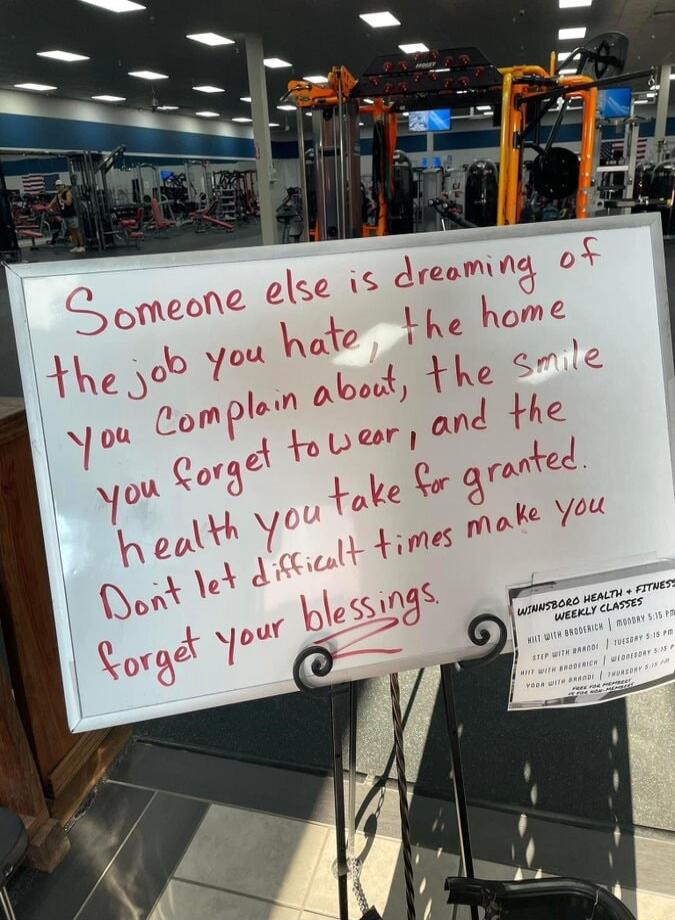 Someone else is dreaming of
the job you hate, the home
you complain about, the smile
you forget to wear, and the
health you take for granted.
Don't let difficult times make you
forget your blessings.
WINNSBORO HEALTH + FITNESS
WEEKLY CLASSES
HIIT WITH BRODERICH | MONDAY 5:15 PM
STEP WITH BRANDI | TUESDAY 5:15 PM
HIIT WITH BRODERICH | WEDNESDAY 5:15 P
YOGA WITH BRANDI | THURSDAY 5:15 PM
FREE FOR MEMBERS
FOR NON-MEMBERS